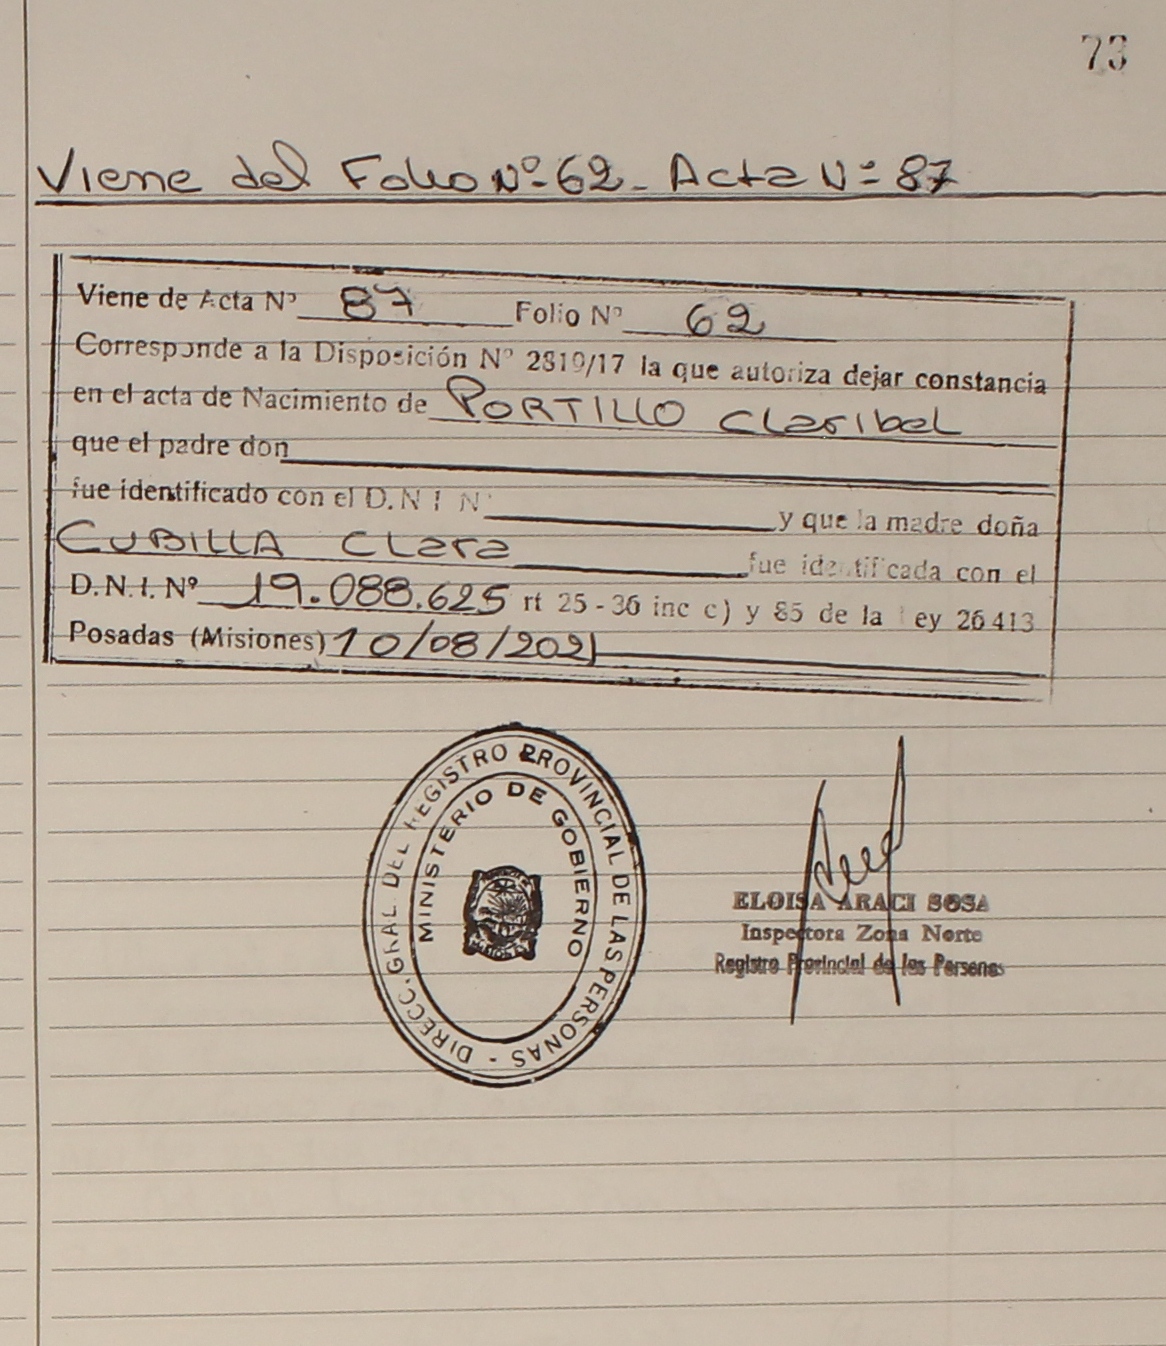 73
Viene del Folio Nº 62 - Acta Nº 87
Viene de Acta Nº 87 Folio Nº 62
Corresponde a la Disposición Nº 2819/17 la que autoriza dejar constancia
en el acta de Nacimiento de PORTILLO Claribel
que el padre don
fue identificado con el D.N.I Nº y que la madre doña
CUBILLA Clara fue identificada con el
D.N.I. Nº 19.088.625 rt 25-36 inc c) y 85 de la ley 26413
Posadas (Misiones) 10/08/2021
DIRECC. GRAL. DEL REGISTRO PROVINCIAL DE LAS PERSONAS -
MINISTERIO DE GOBIERNO
ELOISA ARACI SOSA
Inspectora Zona Norte
Registro Provincial de las Personas